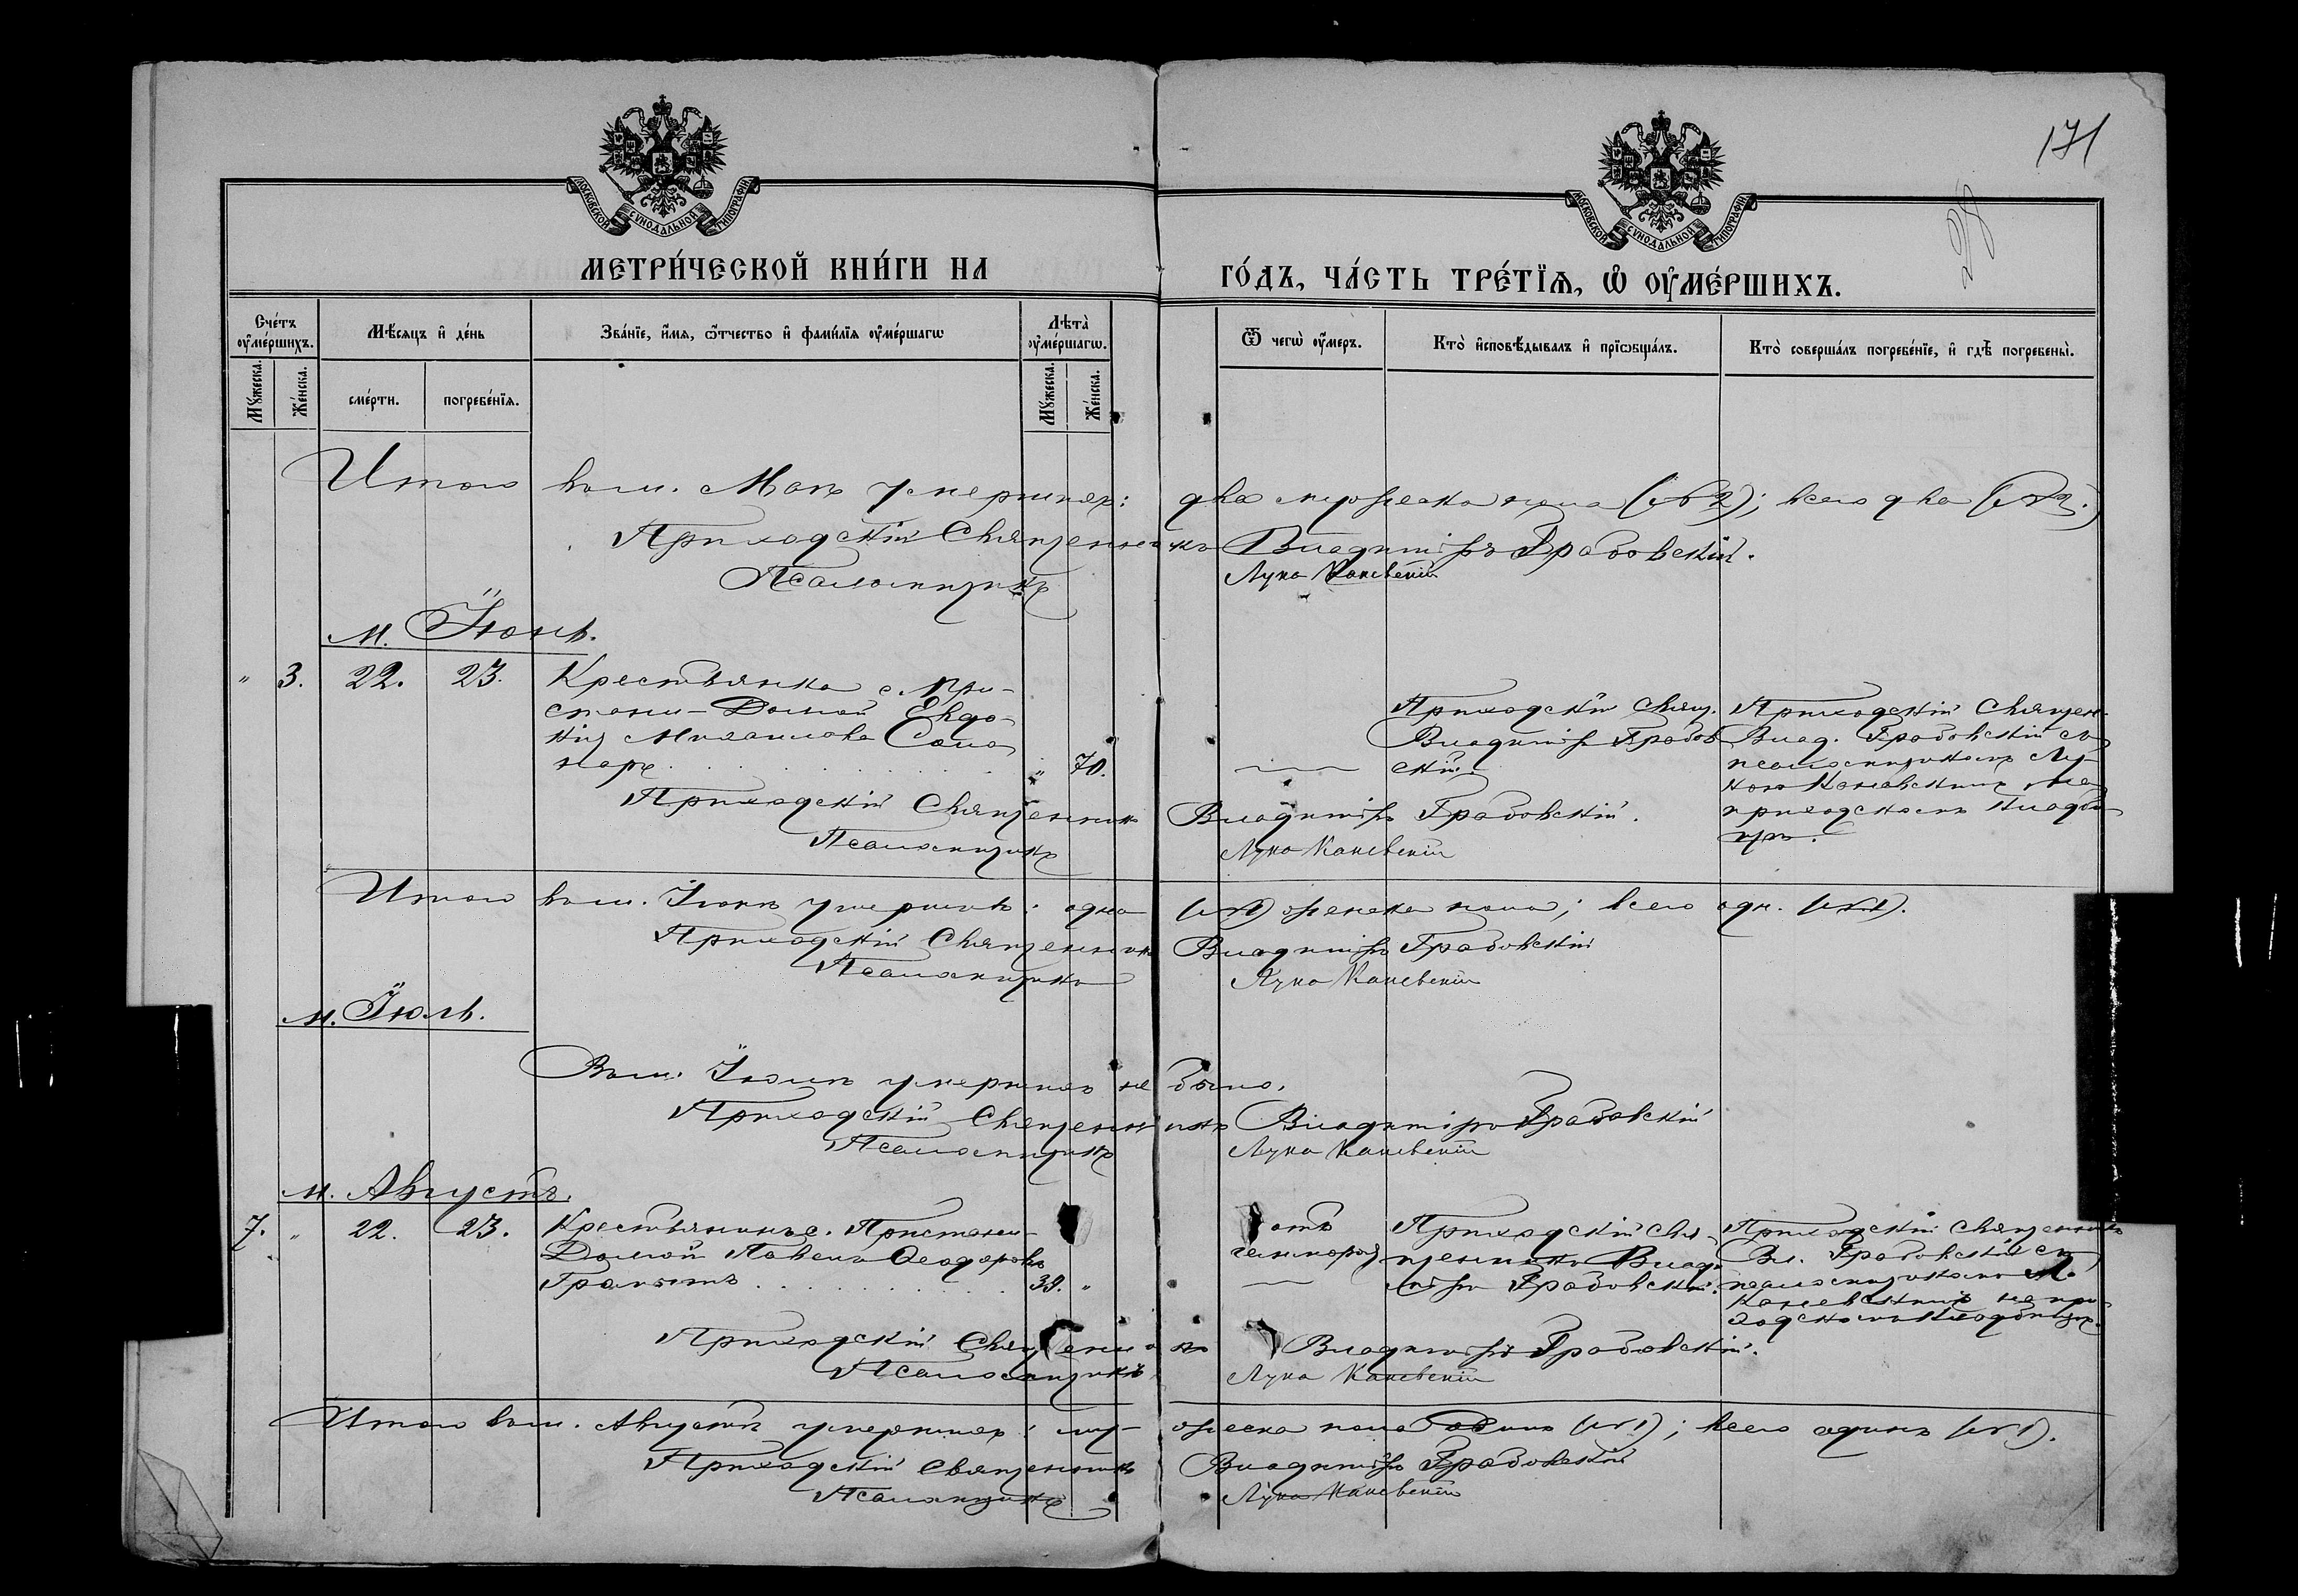 171
28
МОСКОВСКОЙ СѴНОДАЛЬНОЙ ТИПОГРАФІИ.
МОСКОВСКОЙ СѴНОДАЛЬНОЙ ТИПОГРАФІИ.
МЕТРИ́ЧЕСКОЙ КНИ́ГИ НА
ГО́ДЪ, ЧА́СТЬ ТРЕ́ТЇѦ, Ѡ҆ ОУ҆МЕ́РШИХЪ.
Сче́тъ оу҆ме́ршихъ.
Мѣ́сѧцъ и҆ де́нь
Зва́нїе, и҆́мѧ, ѻ҆́тчество и҆ фами́лїѧ оу҆ме́ршагѡ
Лѣта̀ оу҆ме́ршагѡ.
Ѿ чегѡ̀ оу҆́меръ.
Кто̀ и҆сповѣ́дывалъ и҆ прїѡбща́лъ.
Кто̀ соверша́лъ погребе́нїе, и҆ гдѣ̀ погребены̀.
Мꙋ́жеска.
Же́нска.
сме́рти.
погребе́нїѧ.
Мꙋ́жеска.
Же́нска.
Итого в м. Маѣ умершихъ: два мужеска пола (№ 2); всего два (№ 2.)
Приходскій Священникъ Владиміръ Грабовскій.
Псаломщикъ Лука Каневскій
м. Іюнь.
" 3. 22. 23. Крестьянка с. При-
стани-Долгой Евдо-
кія Михаилова
" 70.
Приходскій Свящ.
Владиміръ Грабов
скій.
Приходскій Священ.
Влад. Грабовскій съ
псаломщикомъ Лу-
кою Каневскимъ на
приходскомъ кладби
щѣ.
Приходскій Священникъ Владиміръ Грабовскій.
Псаломщикъ Лука Каневскій
Итого в м. Іюнѣ умершихъ: одна (№1) женска пола; всего одн. (№1).
Приходскій Священникъ Владиміръ Грабовскій
Псаломщикъ Лука Каневскій
м. Іюль.
В м. Іюлѣ умершихъ не было.
Приходскій Священникъ Владиміръ Грабовскій
Псаломщикъ Лука Каневскій
м. Августъ.
7. " 22. 23. Крестьянинъ с. Пристани-
Долгой Павелъ Ѳеодоровъ
"
отъ
Приходскій Свя-
щенникъ Влади
міръ Грабовскій.
Приходскій Священникъ
Вл. Грабовскій съ
псаломщикомъ Л.
Каневскимъ на при-
ходскомъ кладбищѣ.
Приходскій Священникъ Владиміръ Грабовскій.
Псаломщикъ Лука Каневскій
Итого в м. Августѣ умершихъ: му- жеска пола одинъ (№1); всего одинъ (№1).
Приходскій Священникъ Владиміръ Грабовскій
Псаломщикъ Лука Каневскій